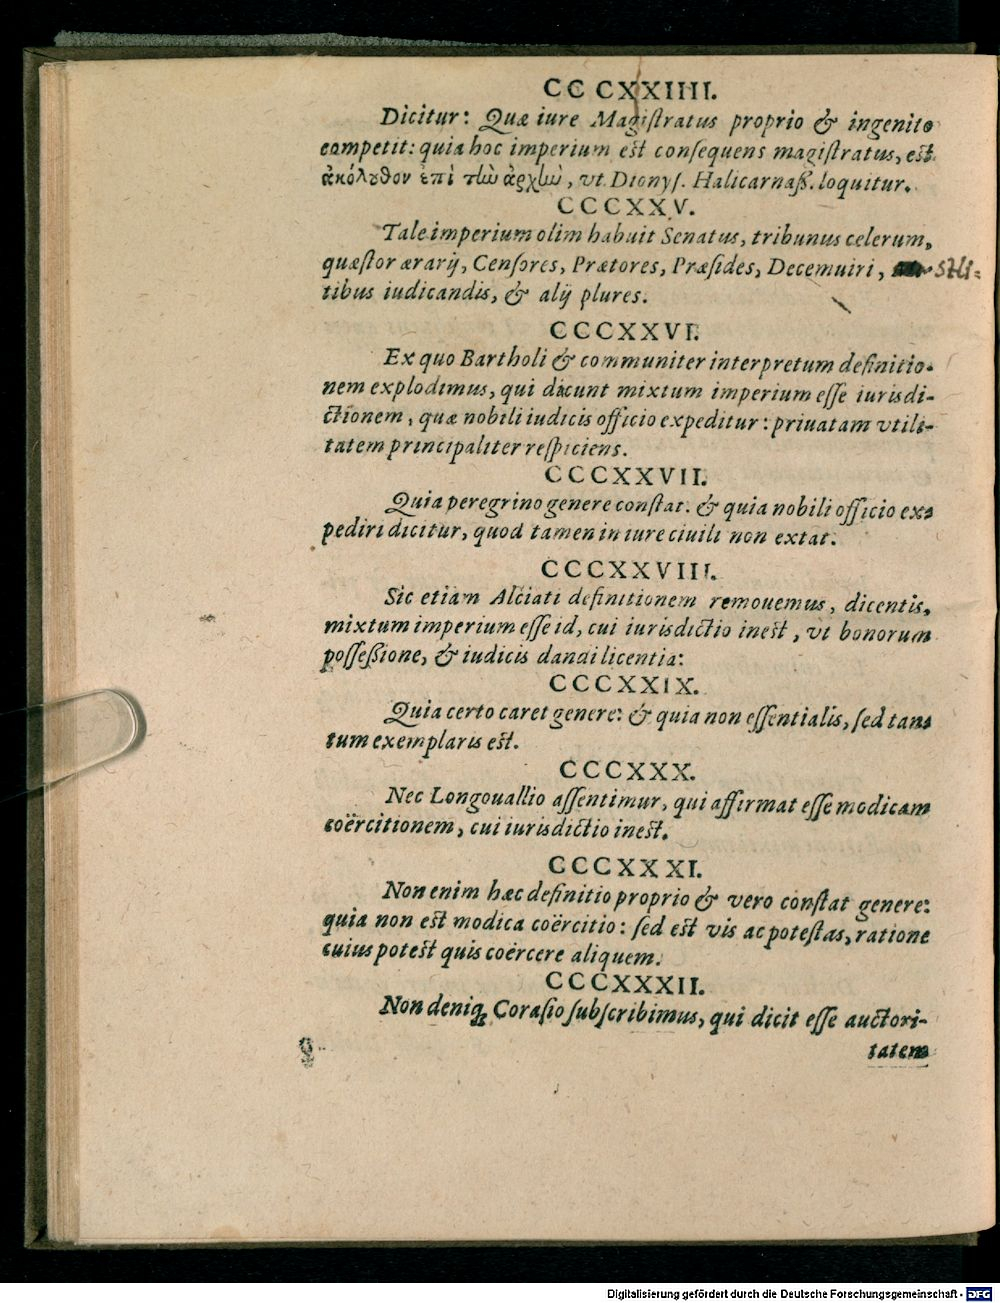 CCCXXIIII.
Dicitur: Quæ iure Magiſtratus proprio & ingenito
competit: quia hoc imperium est conſequens magiſtratus, est
ἀκόλȣθον ἐπὶ τὼ ἀρχὼ, vt Dionyſ. Halicarnaß. loquitur.
CCCXXV.
Tale imperium olim habuit Senatus, tribunus celerum,
quæſtor ærarij, Cenſores, Prætores, Præſides, Decemuiri, Stli-
tibus iudicandis, & alij plures.
CCCXXVI.
Ex quo Bartholi & communiter interpretum definitio-
nem explodimus, qui dicunt mixtum imperium eſſe iurisdi-
ctionem, quæ nobili iudicis officio expeditur: priuatam vtili-
tatem principaliter reſpiciens.
CCCXXVII.
Quia peregrino genere conſtat. & quia nobili officio ex-
pediri dicitur, quod tamen in iure ciuili non extat.
CCCXXVIII.
Sic etiam Alciati definitionem remouemus, dicentis,
mixtum imperium eſſe id, cui iurisdictio inest, vt bonorum
poſſeßione, & iudicis dandi licentia:
CCCXXIX.
Quia certo caret genere: & quia non eſſentialis, ſed tan-
tum exemplaris est.
CCCXXX.
Nec Longouallio aſſentimur, qui affirmat eſſe modicam
coërcitionem, cui iurisdictio inest.
CCCXXXI.
Non enim hæc definitio proprio & vero conſtat genere:
quia non est modica coërcitio: ſed est vis ac poteſtas, ratione
cuius potest quis coërcere aliquem.
CCCXXXII.
Non deniq; Coraſio ſubſcribimus, qui dicit eſſe auctori-
tatem
Digitalisierung gefördert durch die Deutsche Forschungsgemeinschaft - DFG